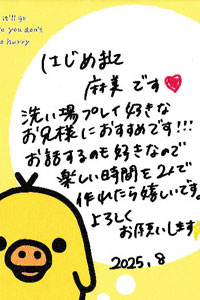 it'll go
you don't
hurry
はじめまして
麻美です♥
洗い場プレイ好きな
お兄様におすすめです!!!
お話するのも好きなので
楽しい時間を2人で
作れたら嬉しいです。
よろしく
お願いします
2025.8